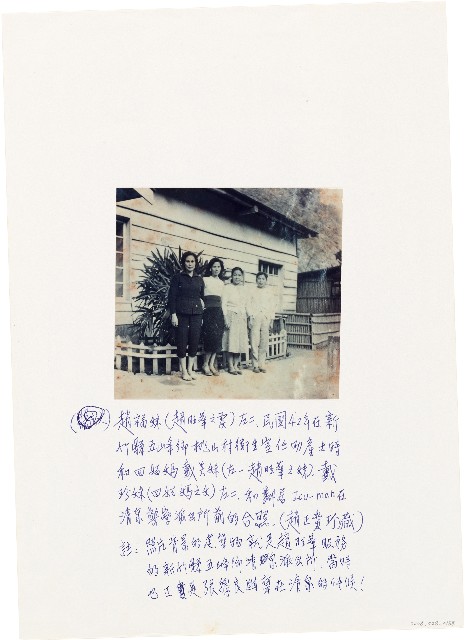 趙福妹(趙旺華之妻)左二. 民國42年在新
竹縣五峰鄉桃山村衛生室任助產士時
和四姑媽戴美妹(左一趙旺華之姊). 戴
珍妹(四姑媽之女)左二. 和戴 在
清泉警 派出所前的合照. (趙正貴珍藏)
註: 照片背景的建築物就是趙旺華服務
的新竹縣五峰鄉清泉派出所. 當時
也正 是張學良 在清泉的時候!